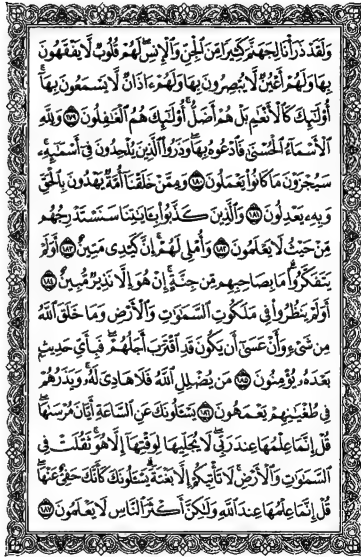 وَلَقَدْ ذَرَأْنَا لِجَهَنَّمَ كَثِيرًا مِّنَ الْجِنِّ وَالْإِنسِ لَهُمْ قُلُوبٌ لَّا يَفْقَهُونَ
بِهَا وَلَهُمْ أَعْيُنٌ لَّا يُبْصِرُونَ بِهَا وَلَهُمْ ءَاذَانٌ لَّا يَسْمَعُونَ بِهَا
أُوْلَٰٓئِكَ كَالْأَنْعَٰمِ بَلْ هُمْ أَضَلُّ أُوْلَٰٓئِكَ هُمُ الْغَٰفِلُونَ ١٧٩ وَلِلَّهِ
الْأَسْمَآءُ الْحُسْنَىٰ فَادْعُوهُ بِهَا وَذَرُوا الَّذِينَ يُلْحِدُونَ فِىٓ أَسْمَٰٓئِهِۦ
سَيُجْزَوْنَ مَا كَانُوا يَعْمَلُونَ ١٨٠ وَمِمَّنْ خَلَقْنَآ أُمَّةٌ يَهْدُونَ بِالْحَقِّ
وَبِهِۦ يَعْدِلُونَ ١٨١ وَالَّذِينَ كَذَّبُوا بِـَٔايَٰتِنَا سَنَسْتَدْرِجُهُم
مِّنْ حَيْثُ لَا يَعْلَمُونَ ١٨٢ وَأُمْلِى لَهُمْ إِنَّ كَيْدِى مَتِينٌ ١٨٣ أَوَلَمْ
يَتَفَكَّرُوا مَا بِصَاحِبِهِم مِّن جِنَّةٍ إِنْ هُوَ إِلَّا نَذِيرٌ مُّبِينٌ ١٨٤
أَوَلَمْ يَنظُرُوا فِى مَلَكُوتِ السَّمَٰوَٰتِ وَالْأَرْضِ وَمَا خَلَقَ اللَّهُ
مِن شَىْءٍ وَأَنْ عَسَىٰٓ أَن يَكُونَ قَدِ اقْتَرَبَ أَجَلُهُمْ فَبِأَىِّ حَدِيثٍۭ
بَعْدَهُۥ يُؤْمِنُونَ ١٨٥ مَن يُضْلِلِ اللَّهُ فَلَا هَادِىَ لَهُۥ وَيَذَرُهُمْ
فِى طُغْيَٰنِهِمْ يَعْمَهُونَ ١٨٦ يَسْـَٔلُونَكَ عَنِ السَّاعَةِ أَيَّانَ مُرْسَىٰهَا
قُلْ إِنَّمَا عِلْمُهَا عِندَ رَبِّى لَا يُجَلِّيهَا لِوَقْتِهَآ إِلَّا هُوَ ثَقُلَتْ فِى
السَّمَٰوَٰتِ وَالْأَرْضِ لَا تَأْتِيكُمْ إِلَّا بَغْتَةً يَسْـَٔلُونَكَ كَأَنَّكَ حَفِىٌّ عَنْهَا
قُلْ إِنَّمَا عِلْمُهَا عِندَ اللَّهِ وَلَٰكِنَّ أَكْثَرَ النَّاسِ لَا يَعْلَمُونَ ١٨٧